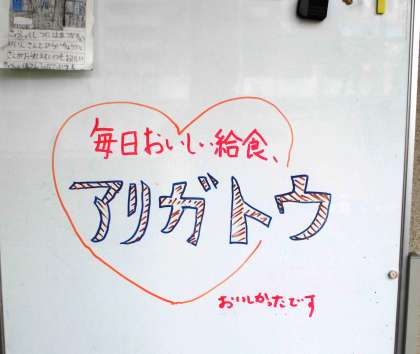 毎日おいしい給食、
アリガトウ
おいしかったです